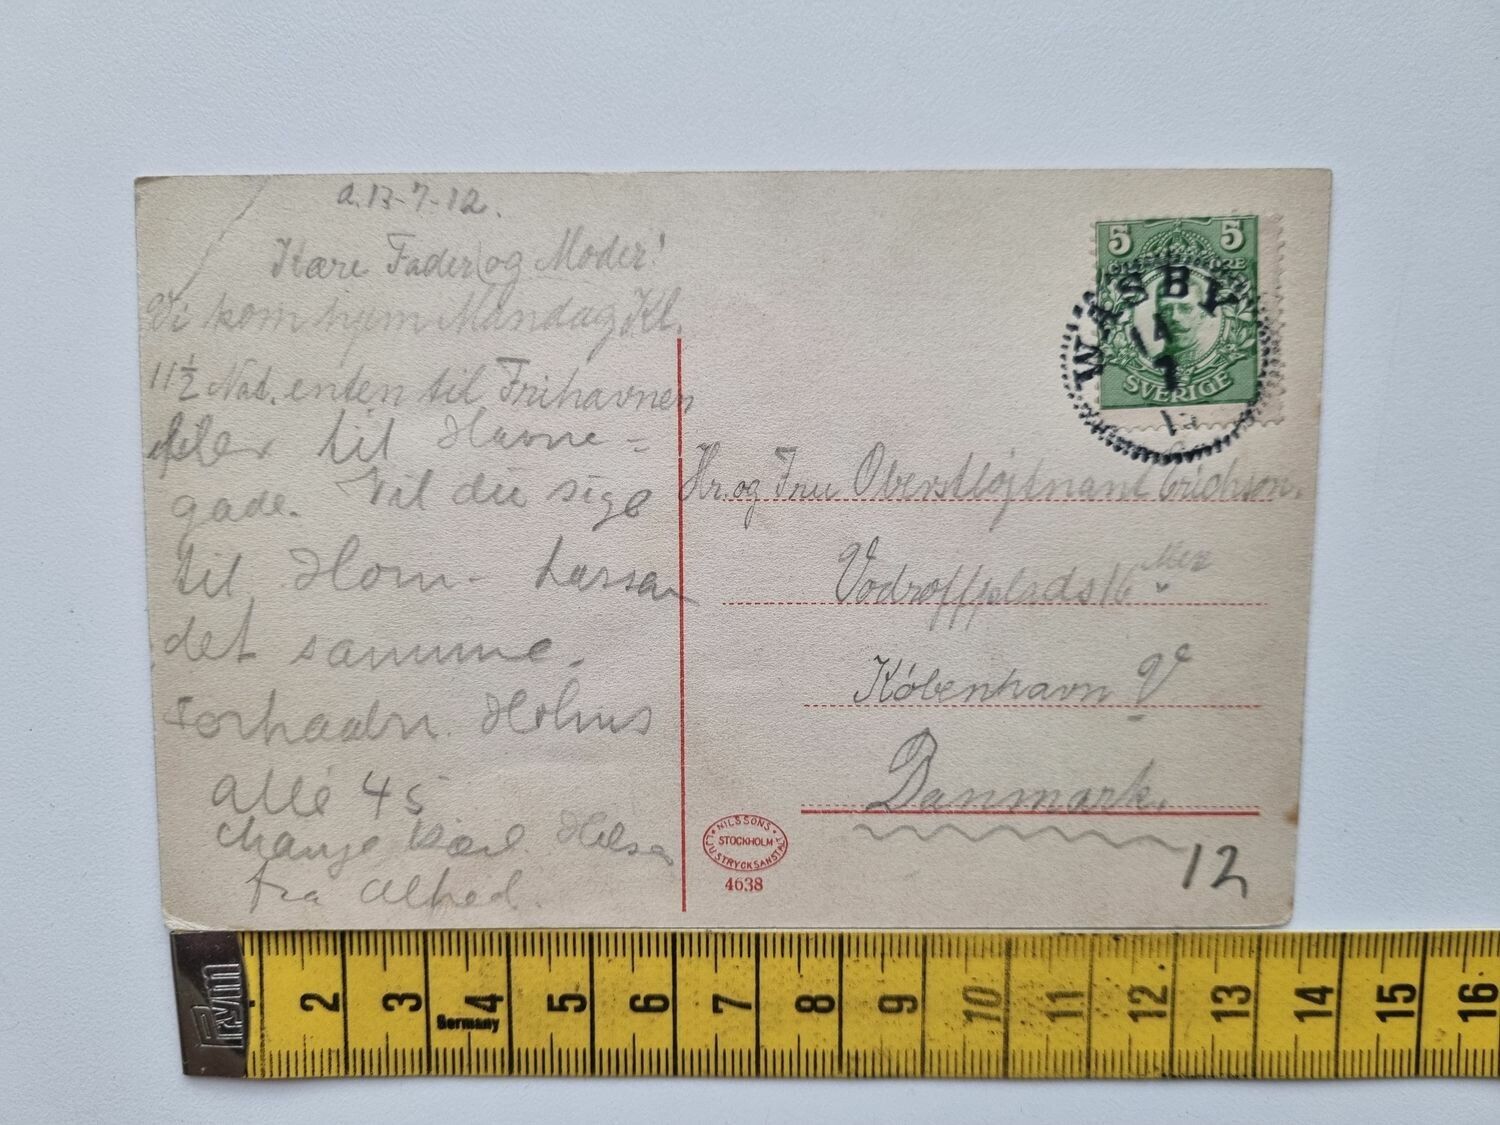 a. 13-7-12.
Kære Fader og Moder!
Vi kom hjem Mandag Kl.
11½ Nat. enten til Frihavnen
eller til Havne-
gade. Vil du sige
til Horn-Larsen
det samme.
Holms
alle 45
Kærl. Hilsen
fra Alfred.
5 5
ÖRE
SVERIGE
WÄSBY
14
7
12
Hr. og Fru Oberstløjtnant Erichsen.
Vodroffplads 16
København V
Danmark.
12
NILSSONS
STOCKHOLM
LJUSTRYCKSANSTALT
4638
Prym
Germany
2 3 4 5 6 7 8 9 10 11 12 13 14 15 16